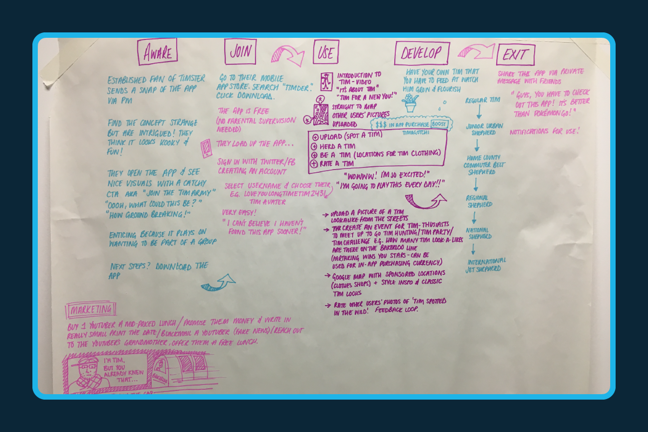 AWARE
ESTABLISHED FAN OF TIMSTER
SENDS A SNAP OF THE APP
VIA PM
FIND THE CONCEPT STRANGE
BUT ARE INTRIGUED! THEY
THINK IT LOOKS KOOKY &
FUN!
THEY OPEN THE APP & SEE
NICE VISUALS WITH A CATCHY
CTA AKA "JOIN THE TIM ARMY"
"OOOH, WHAT COULD THIS BE?"
"HOW GROUND BREAKING!"
ENTICING BECAUSE IT PLAYS ON
WANTING TO BE PART OF A GROUP
NEXT STEPS? DOWNLOAD THE
APP
JOIN
GO TO THEIR MOBILE
APP STORE. SEARCH
CLICK DOWNLOAD.
THE APP IS FREE
(NO PARENTAL SUPERVISION
NEEDED)
THEY LOAD UP THE APP...
SIGN IN WITH TWITTER/FB
CREATING AN ACCOUNT
SELECT USERNAME & CHOOSE THEIR
TIM AVATER
VERY EASY!
"I CAN'T BELIEVE I HAVEN'T
FOUND THIS APP SOONER!"
USE
INTRODUCTION TO
TIM - VIDEO
"IT'S ABOUT TIM"
"TIM FOR A NEW YOU!"
STRAIGHT TO MAP
OTHER USERS' PICTURES
UPLOADED
UPLOAD (SPOT A TIM)
HERD A TIM
BE A TIM (LOCATIONS FOR TIM CLOTHING)
RATE A TIM
"WOWWW! I'M SO EXCITED!"
"I'M GOING TO PLAY THIS EVERY DAY!!"
→ UPLOAD A PICTURE OF A TIM
LOOKALIKE FROM THE STREETS
→ YOU CREATE AN EVENT FOR TIM-THUSIASTS
TO MEET UP TO GO TIM HUNTING/TIM PARTY/
TIM CHALLENGE E.G. HOW MANY TIM LOOK A LIKES
ARE THERE ON THE BAKERLOO LINE
(PARTAKING WINS YOU STARS - CAN BE
USED FOR IN-APP PURCHASING CURRENCY)
→ GOOGLE MAP WITH SPONSORED LOCATIONS
(CLOTHES SHOPS) + STYLE INSPO & CLASSIC
TIM LOOKS
→ RATE OTHER USERS' PHOTOS OF 'TIM SPOTTED
IN THE WILD' FEEDBACK LOOP.
DEVELOP
HAVE YOUR OWN TIM THAT
YOU HAVE TO FEED AT WATCH
HIM GROW & FLOURISH
$$$ IN APP PURCHASE
REGULAR TIM
JUNIOR URBAN
SHEPHERD
HOME COUNTY
COMMUTER BELT
SHEPHERD
REGIONAL
SHEPHERD
NATIONAL
SHEPHERD
INTERNATIONAL
JET SHEPHERD
EXIT
SHARE THE APP VIA PRIVATE
MESSAGE WITH FRIENDS
"GUYS, YOU HAVE TO CHECK
OUT THIS APP! IT'S BETTER
THAN POKEMON GO!"
NOTIFICATIONS FOR USE!
MARKETING
BUY 1 YOUTUBER A MID-PRICED LUNCH / PROMISE THEM MONEY & WRITE IN
REALLY SMALL PRINT THE DATE / BLACKMAIL A YOUTUBER (FAKE NEWS) / REACH OUT
TO THE YOUTUBER'S GRANDMOTHER, OFFER THEM A FREE LUNCH.
I'M TIM,
BUT YOU
ALREADY KNEW
THAT...